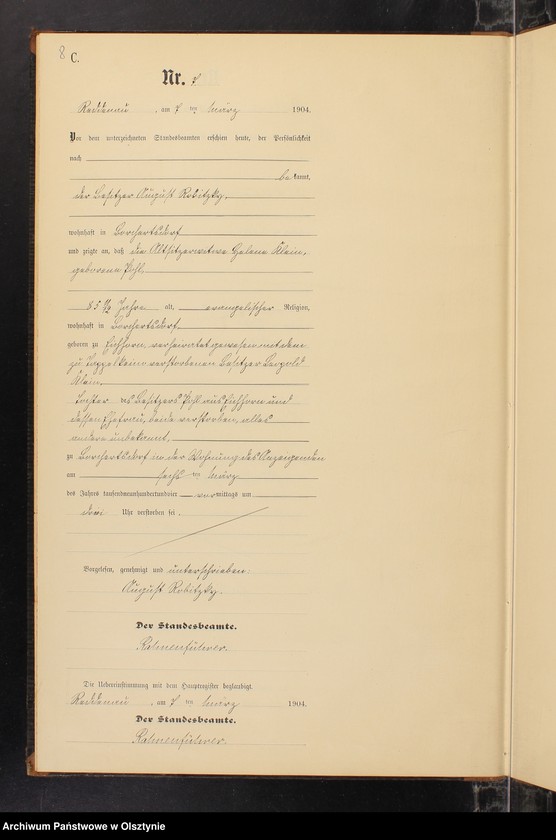 8 C.
Nr. 7
Reddenau, am 7 ten März 1904.
Vor dem unterzeichneten Standesbeamten erschien heute, der Persönlichkeit
nach
be kannt,
der Besitzer August Robitzky,
wohnhaft in Borchertsdorf
und zeigte an, daß die Altsitzerwitwe Helene Klein,
geborene Pohl,
85 1/2 Jahre alt, evangelischer Religion,
wohnhaft in Borchertsdorf,
geboren zu Eichhorn, verheiratet gewesen mit dem
zu verstorbenen Besitzer Leopold
Klein,
Tochter des Besitzers Pohl aus Eichhorn und
dessen Ehefrau, beide verstorben, alles
andere unbekannt,
zu Borchertsdorf in der Wohnung des Anzeigenden
am sechs ten März
des Jahres tausendneunhundertundvier vor mittags um
drei Uhr verstorben sei.
Vorgelesen, genehmigt und unterschrieben:
August Robitzky.
Der Standesbeamte.
Rahmenführer.
Die Uebereinstimmung mit dem Hauptregister beglaubigt.
Reddenau, am 7 ten März 1904.
Der Standesbeamte.
Rahmenführer.
Archiwum Państwowe w Olsztynie